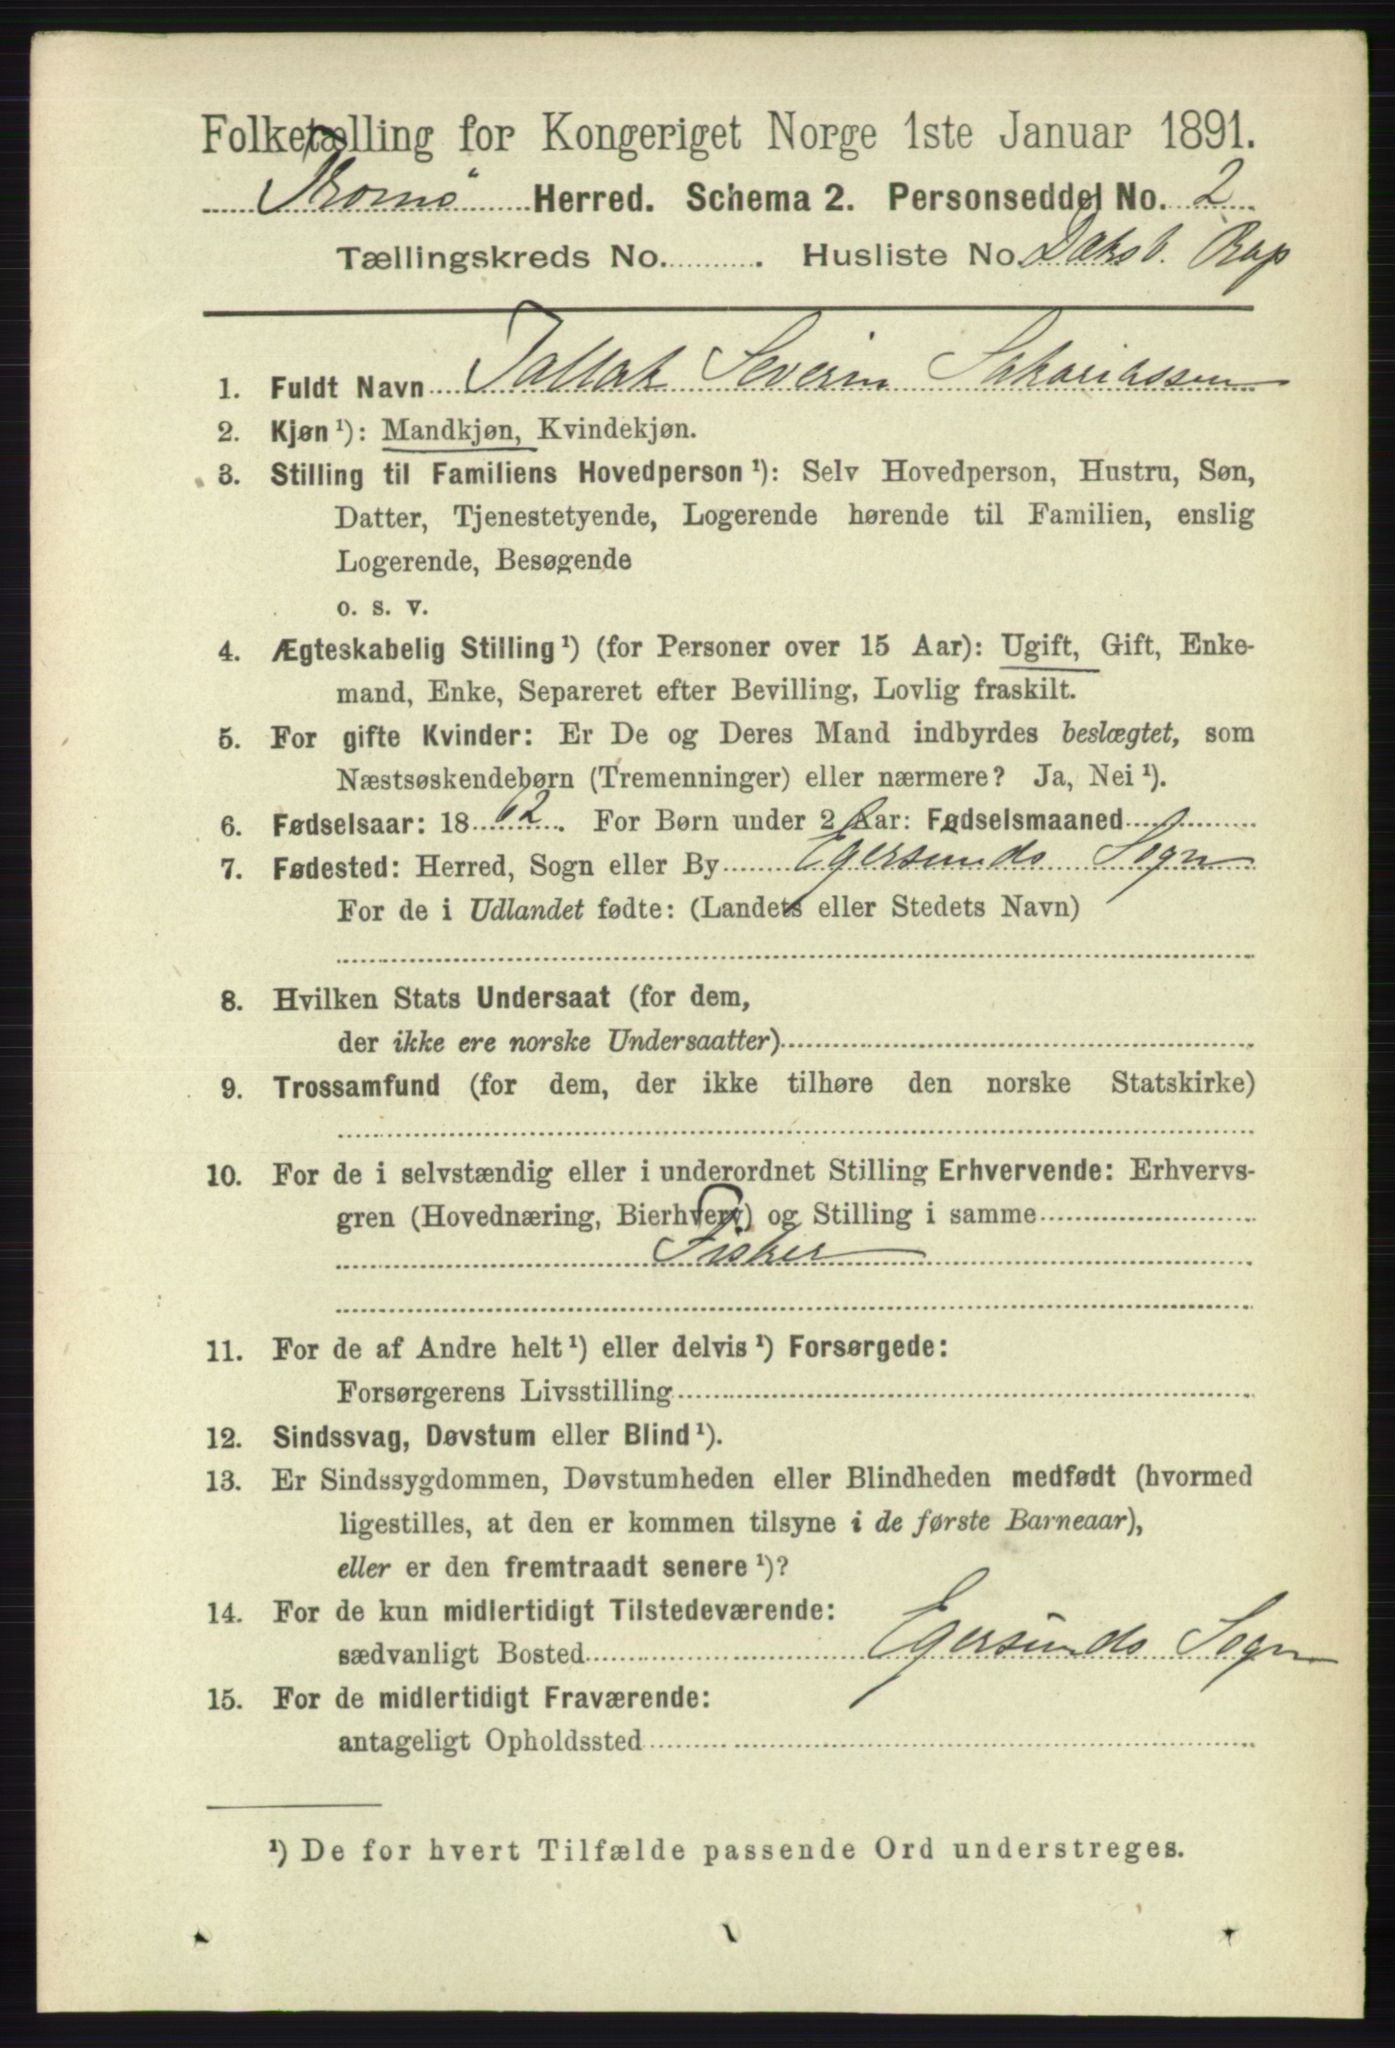 Folketælling for Kongeriget Norge 1ste Januar 1891.
Tromø Herred. Schema 2. Personseddel No. 2
Tællingskreds No. . Husliste No. Daksb. Rap
1. Fuldt Navn Tallak Severin Sakariassen
2. Kjøn ¹): Mandkjøn, Kvindekjøn.
3. Stilling til Familiens Hovedperson ¹): Selv Hovedperson, Hustru, Søn,
Datter, Tjenestetyende, Logerende hørende til Familien, enslig
Logerende, Besøgende
o. s. v.
4. Ægteskabelig Stilling ¹) (for Personer over 15 Aar): Ugift, Gift, Enke-
mand, Enke, Separeret efter Bevilling, Lovlig fraskilt.
5. For gifte Kvinder: Er De og Deres Mand indbyrdes beslægtet, som
Næstsøskendebørn (Tremenninger) eller nærmere? Ja, Nei ¹).
6. Fødselsaar: 1862. For Børn under 2 Aar: Fødselsmaaned
7. Fødested: Herred, Sogn eller By Egersunds Sogn
For de i Udlandet fødte: (Landets eller Stedets Navn)
8. Hvilken Stats Undersaat (for dem,
der ikke ere norske Undersaatter)
9. Trossamfund (for dem, der ikke tilhøre den norske Statskirke)
10. For de i selvstændig eller i underordnet Stilling Erhvervende: Erhvervs-
gren (Hovednæring, Bierhverv) og Stilling i samme
Fisker
11. For de af Andre helt ¹) eller delvis ¹) Forsørgede:
Forsørgerens Livsstilling
12. Sindssvag, Døvstum eller Blind ¹).
13. Er Sindssygdommen, Døvstumheden eller Blindheden medfødt (hvormed
ligestilles, at den er kommen tilsyne i de første Barneaar),
eller er den fremtraadt senere ¹)?
14. For de kun midlertidigt Tilstedeværende:
sædvanligt Bosted Egersunds Sogn
15. For de midlertidigt Fraværende:
antageligt Opholdssted
¹) De for hvert Tilfælde passende Ord understreges.